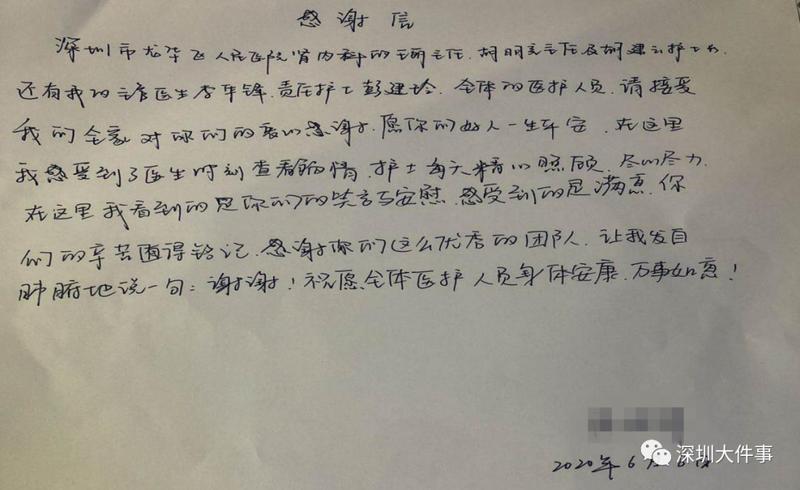 感谢信
深圳市龙华区人民医院肾内科的主任、胡明亮主任及胡建云护士长
还有我的主管医生李军锋、责任护士彭建玲、全体的医护人员、请接受
我们全家对你们的衷心感谢、愿你们好人一生平安、在这里
我感受到了医生时刻查看病情、护士每天精心照顾、尽心尽力、
在这里我看到的是你们的笑言与安慰、感受到的是满意、你
们的辛苦值得铭记、感谢你们这么优秀的团队、让我发自
肺腑地说一句：谢谢！祝愿全体医护人员身体安康、万事如意！
深圳大件事
2020年6月6日